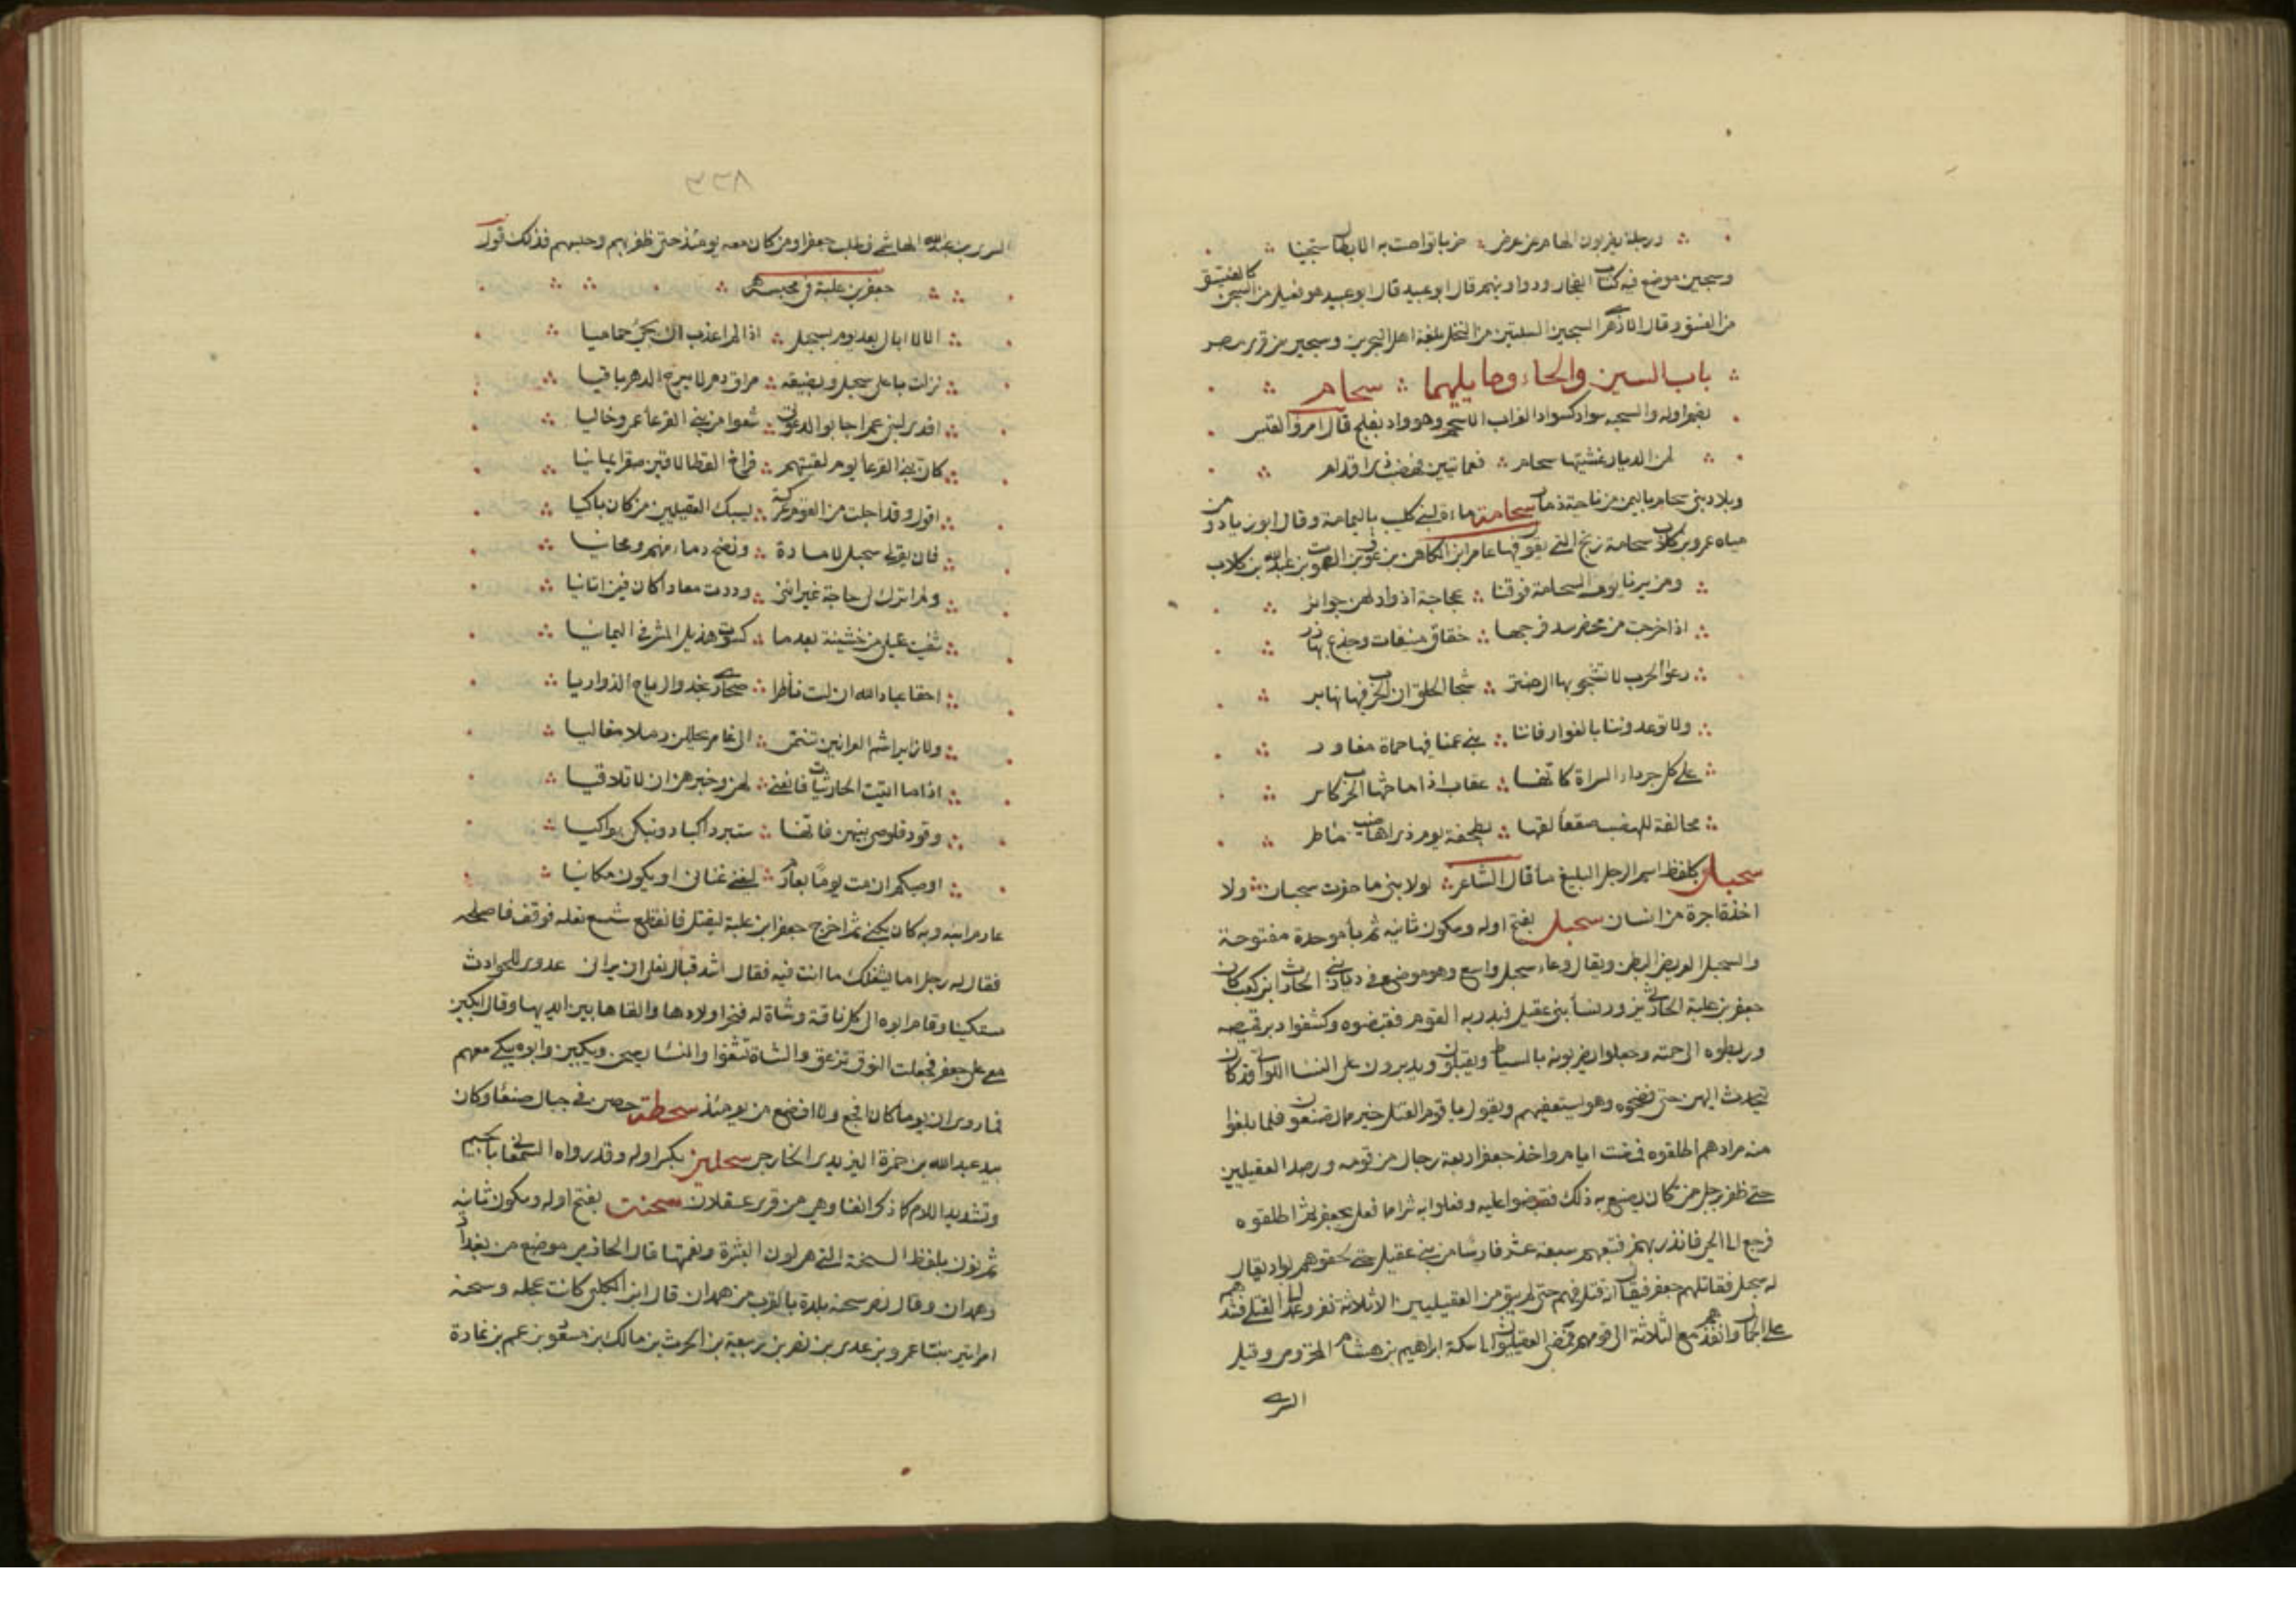 ورجلة يضربون الهام عن عرض ضربا تواصت به الابطال سجينا
وسجين موضع فيه كتاب الفجار ودواوينهم قال ابو عبيد قال ابو عبيد هو فعيل من السجن كالفسيق
من الفسق وقال الازهري السجين السلتين من النخل بلغة اهل البحرين وسجين من قرى مصر
باب السين والحاء وما يليهما سحام
بضم اوله والسحمه سواد كسواد الغراب الاسحم وهو واد بفلج قال امرؤ القيس
لمن الديار غشيتها بسحام فعمايتين فهضب ذي اقدام
وبلاد بني سحام باليمن من ناحية ذمار سحامة ماءة لبني كليب باليمامة وقال ابو زياد ومن
مياه عمرو بن كلاب سحامة زنخ التي يقول فيها عامر ابن الكاهن بن عوف بن الصموت بن عبد الله بن كلاب
ومن يرنا يوم السحامة فوقنا عجاجة اذواد لهن جوائز
اذا خرجت من محضر سد فرجها خفاف منيفات وجذع بهازر
دعوا الحرب لا تشجوا بها ال حنتر شجا الحلق ان الحرب فيها تهابر
ولا توعدونا بالغوار فاننا بني عمنا فيها حماة مغاور
على كل جرداء السراة كانها عقاب اذا ما حثها الحرب كاسر
محالفة للهضب صقعا لقها بطخفة يوم ذو اهاضيب ماطر
سحبان بلفظ اسم الرجل البليغ ماء قال الشاعر لولا بني ما حفرت سحبان ولا
اخذت اجرة من انسان سحبل بفتح اوله وسكون ثانيه ثم باء موحدة مفتوحة
والسحبل العريض البطن ويقال وعاء سحبل واسع وهو موضع في ديار بني الحارث ابن كعب كان
جعفر بن علبة الحارثي يزور نساء بني عقيل فنذر به القوم فقبضوه وكشفوا دبر قميصه
وربطوه الى جمته وجعلوا يضربونه بالسياط ويقبلون ويدبرون على النسا اللواتي قد كان
يتحدث اليهن حتى فضحوه وهو يستعفيهم ويقول يا قوم القتل خير مما تصنعون فلما بلغوا
منه مرادهم اطلقوه فمضت ايام واخذ جعفر اربعة رجال من قومه ورصد العقيليين
حتى ظفر برجل ممن كان يصنع به ذلك فقبضوا عليه وفعلوا به شرا مما فعل بجعفر ثم اطلقوه
فرجع الى الحي فانذر بهم فتبعهم سبعة عشر فارسا من بني عقيل حتى لحقوهم بواد يقال
له سحبل فقاتلهم جعفر فيقال انه قتل فيهم حتى لم يبق من العقيليين الا ثلاثة نفر وعمد الى القتلى فشدهم
على الجمال وانفذهم مع الثلاثة الى قومهم فمضى العقيليون الى مكة ابراهيم بن هشام المخزومي وقيل
السري
٨٢٣
السري بن عبد الله الهاشمي في طلب جعفر ومن كان معه يومئذ حتى ظفر بهم وحبسهم فذلك قول
جعفر بن علبة في محبسه
الا لا ابالي بعد يوم بسحبل اذا لم اعذب ان يجيء حماميا
تركت باعلى سحبل ومضيقه مراق دم لا يبرح الدهر باقيا
افدي لبني عم اجابوا لدعوتي شعوا من بني القرعاء عمي وخاليا
كان بني القرعاء يوم لقيتهم فراخ القطا لاقين صقرا يمانيا
اقول وقد اجلت من القوم عركة ليبك العقيليين من كان باكيا
فان بقرى سحبل لامارة ونضح دماء منهم ومحابيا
ولم اترك لي حاجة غير انني وددت معاذا كان فيمن اتانيا
شفيت غليلي من خشينة بعد ما كسوت هذيل المشرفي اليمانيا
احقا عباد الله ان لست ناظرا صحاري نجد والرياح الذواريا
ولا زايرا شم العرانين تنتمي الى عامر يحللن رملا معاليا
اذا ما اتيت الحارثيات فانعني لهن وخبرهن ان لا تلاقيا
وقود قلوصي بينهن فانها ستبرد اكبادا وتبكي بواكيا
اوصيكم ان مت يوما بعارم ليغني غناي او يكون مكانيا
عارم ابنه وبه كان يكنى ثم اخرج جعفر ابن علبة ليقتل فانقطع شسع نعله فوقف فاصلحه
فقال له رجل اما يشغلك ما انت فيه فقال اشد قبال نعلي ان يراني عدوي للحوادث
مستكينا وقام ابوه الى كل ناقة وشاة له فنحر اولادها والقاها بين ايديها وقال ابكين
معي على جعفر فجعلت النوق ترغو والشاة تثغوا والنساء يصحن ويبكين وابوه يبكي معهم
فما روي ان يوما كان افجع ولا افضع من يومئذ سحطة حصن في جبال صنعاء وكان
بيد عبد الله بن حمزة اليزيدي الخارجي سحلين بكسر اوله وقد رواه السمعاني بالجيم
وتشديد اللام كما ذكر انفا وهي من قرى عسقلان سحنت بفتح اوله وسكون ثانيه
ثم نون بلفظ السحنة التي هي لون البشرة ونعمتها قال الحازمي موضع من بغداد
وهمدان وقال نصر سحنه بلدة بالقرب من همدان قال ابن الكلبي كانت عجله وسحنه
امراتين بنتا عمرو بن عدي بن نصر بن ربيعة بن الحرث بن مالك بن مسعود بن عمم بن نمارة